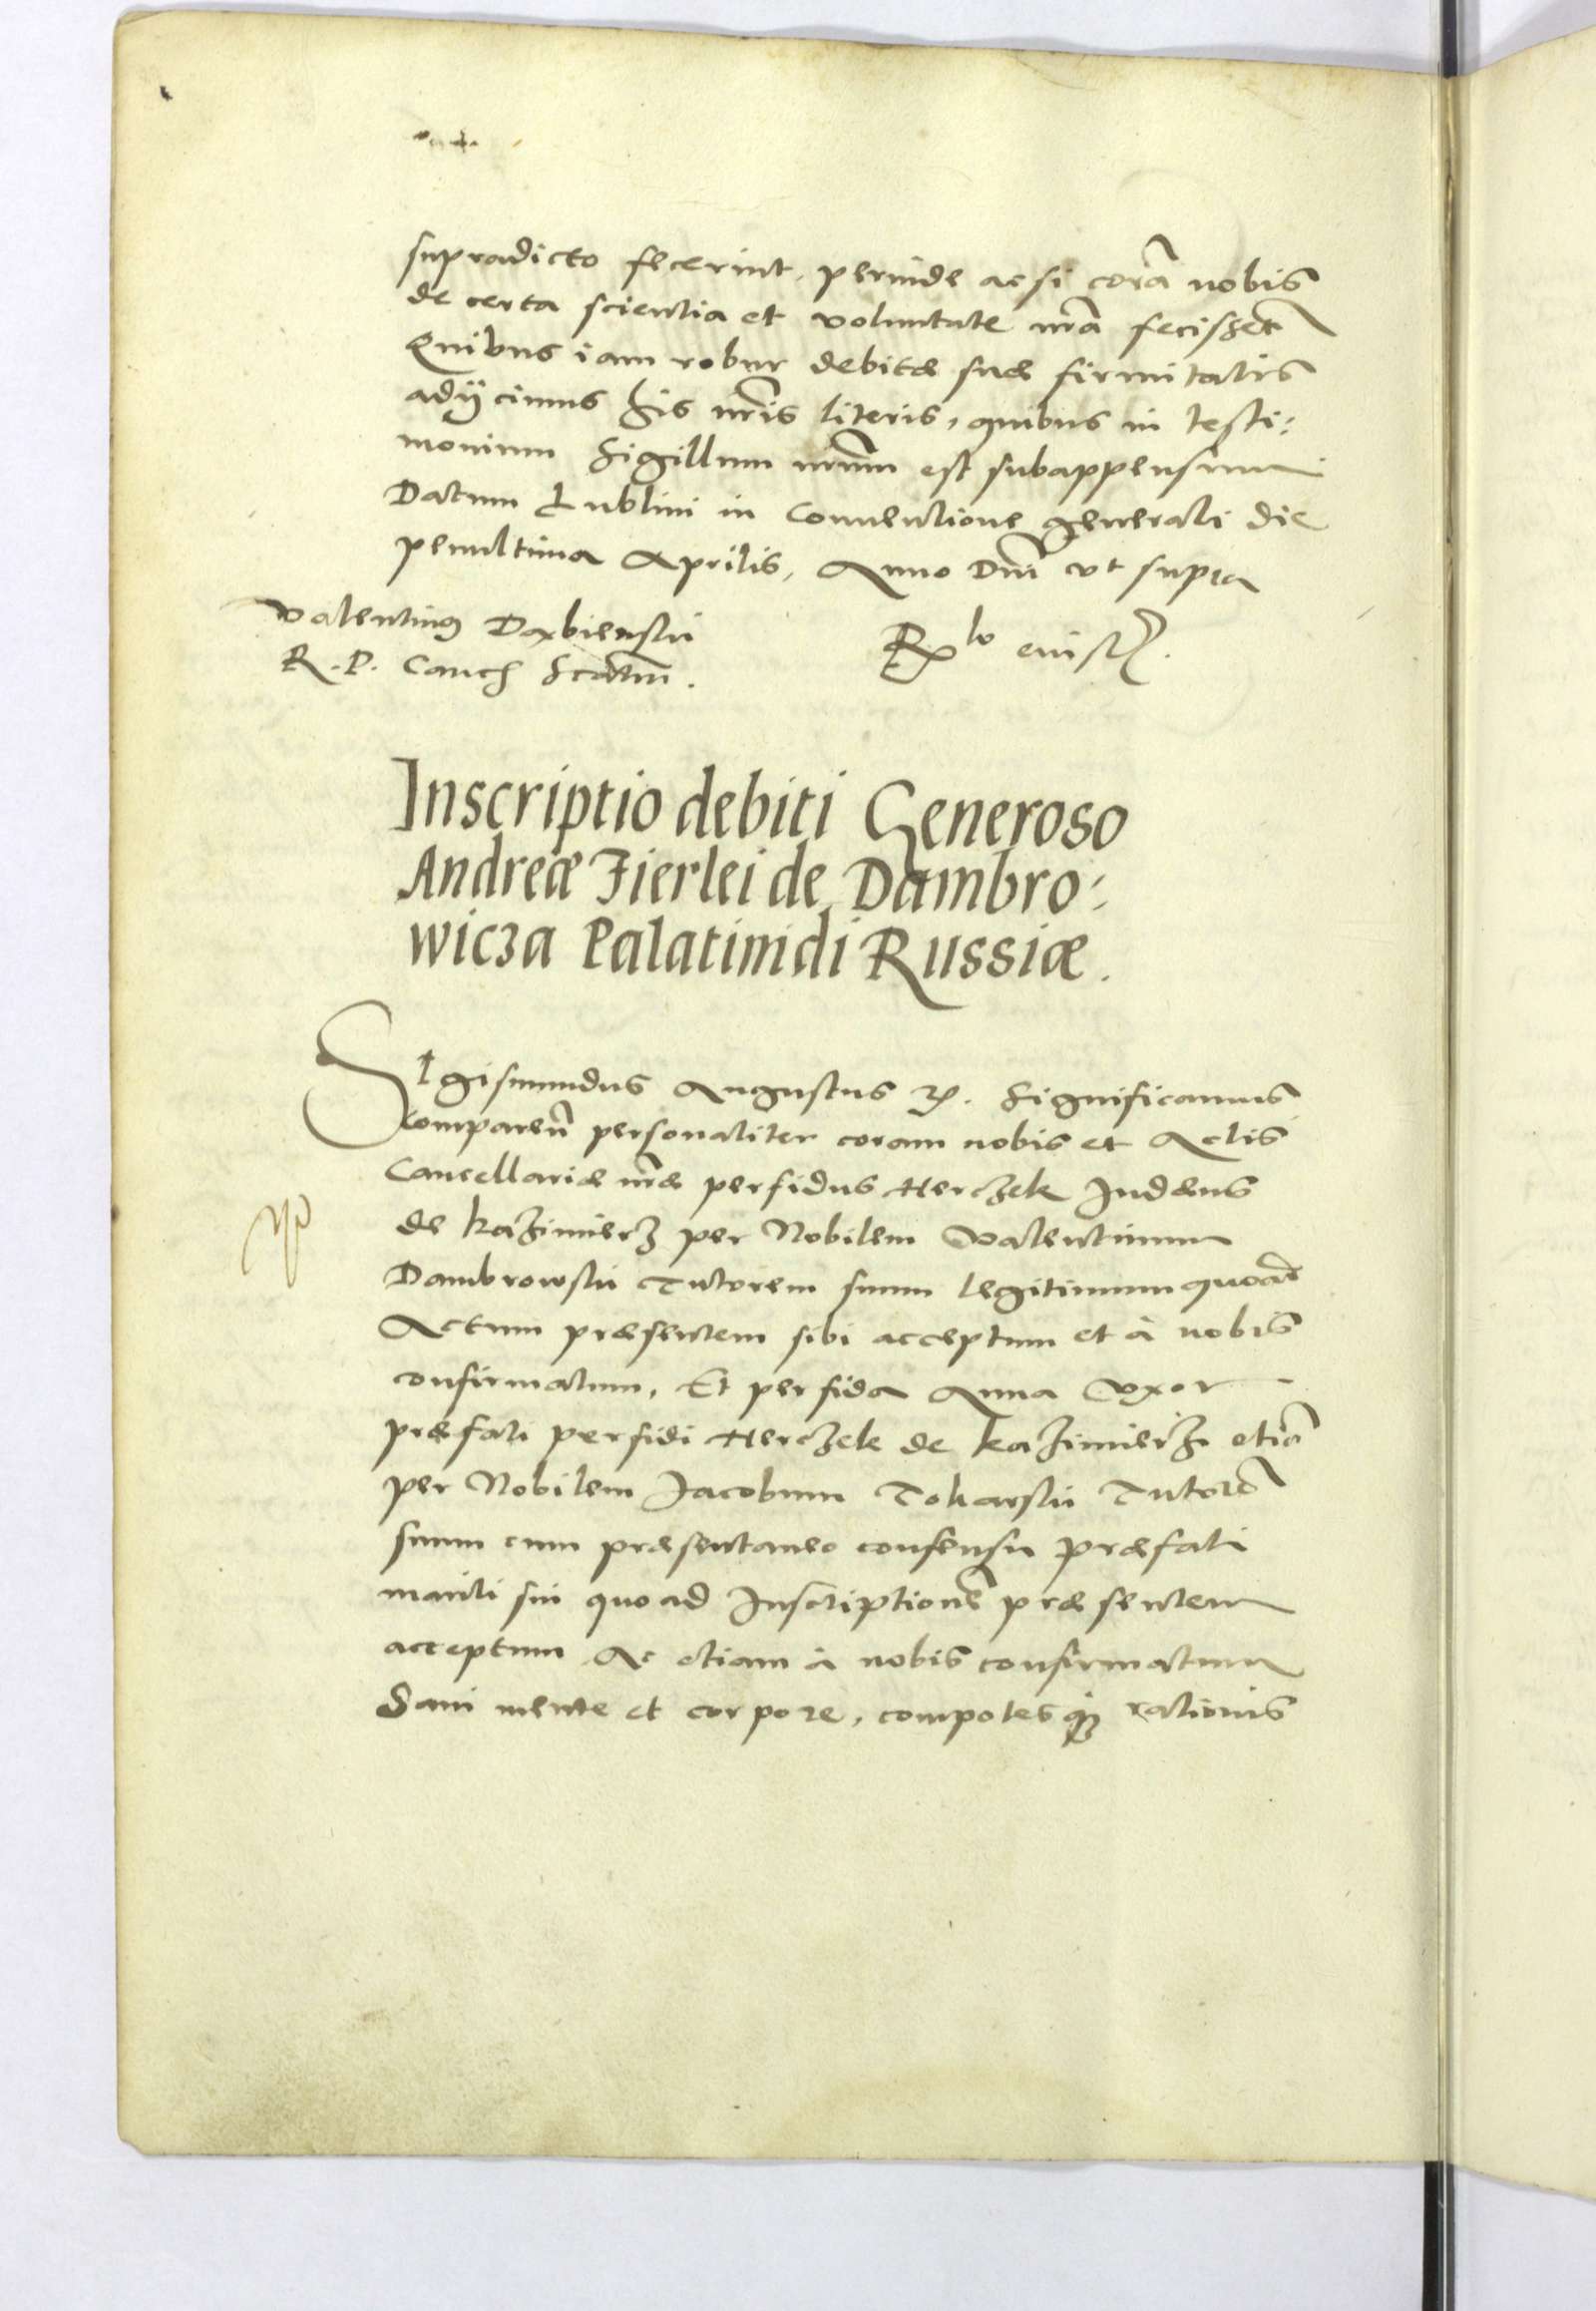 supradicto fecerint, perinde ac si corã nobis
de certa scientia et voluntate nrã fecissẽt
Quibus iam robur debitæ suæ firmitatis
adijcimus his nr̃is literis, quibus in testi:
monium Sigillum nrm̃ est subappensum
Datum Lublini in Conventione generali die
penultima Aprilis, Anno Dnĩ vt supra
Valentinus
R. P. Canc
Inscriptio debiti Generoso
Andreæ Fierlei de Dambro:
wicza Palatinidi Russiæ.
SIgismundus Augustus Significamus
comparen̄ personaliter coram nobis et Actis
Cancellariæ nr̃æ perfidus Herczek Judæus
de Kazimierz per Nobilem Valentinum
Dambrowski Tutorem suum legitimum quoad
Actum præsentem sibi acceptum et à nobis
confirmatum, Et perfida Anna Vxor
præfati perfidi Herczek de Kazimierz etiã
per Nobilem Jacobum Tokarski Tutorẽ
suum cum præsentaneo consensu præfati
mariti sui quoad Inscriptionẽ præsentem
acceptum Ac etiam à nobis confirmatum
Sani mente et corpore, compotesq̃ rationis